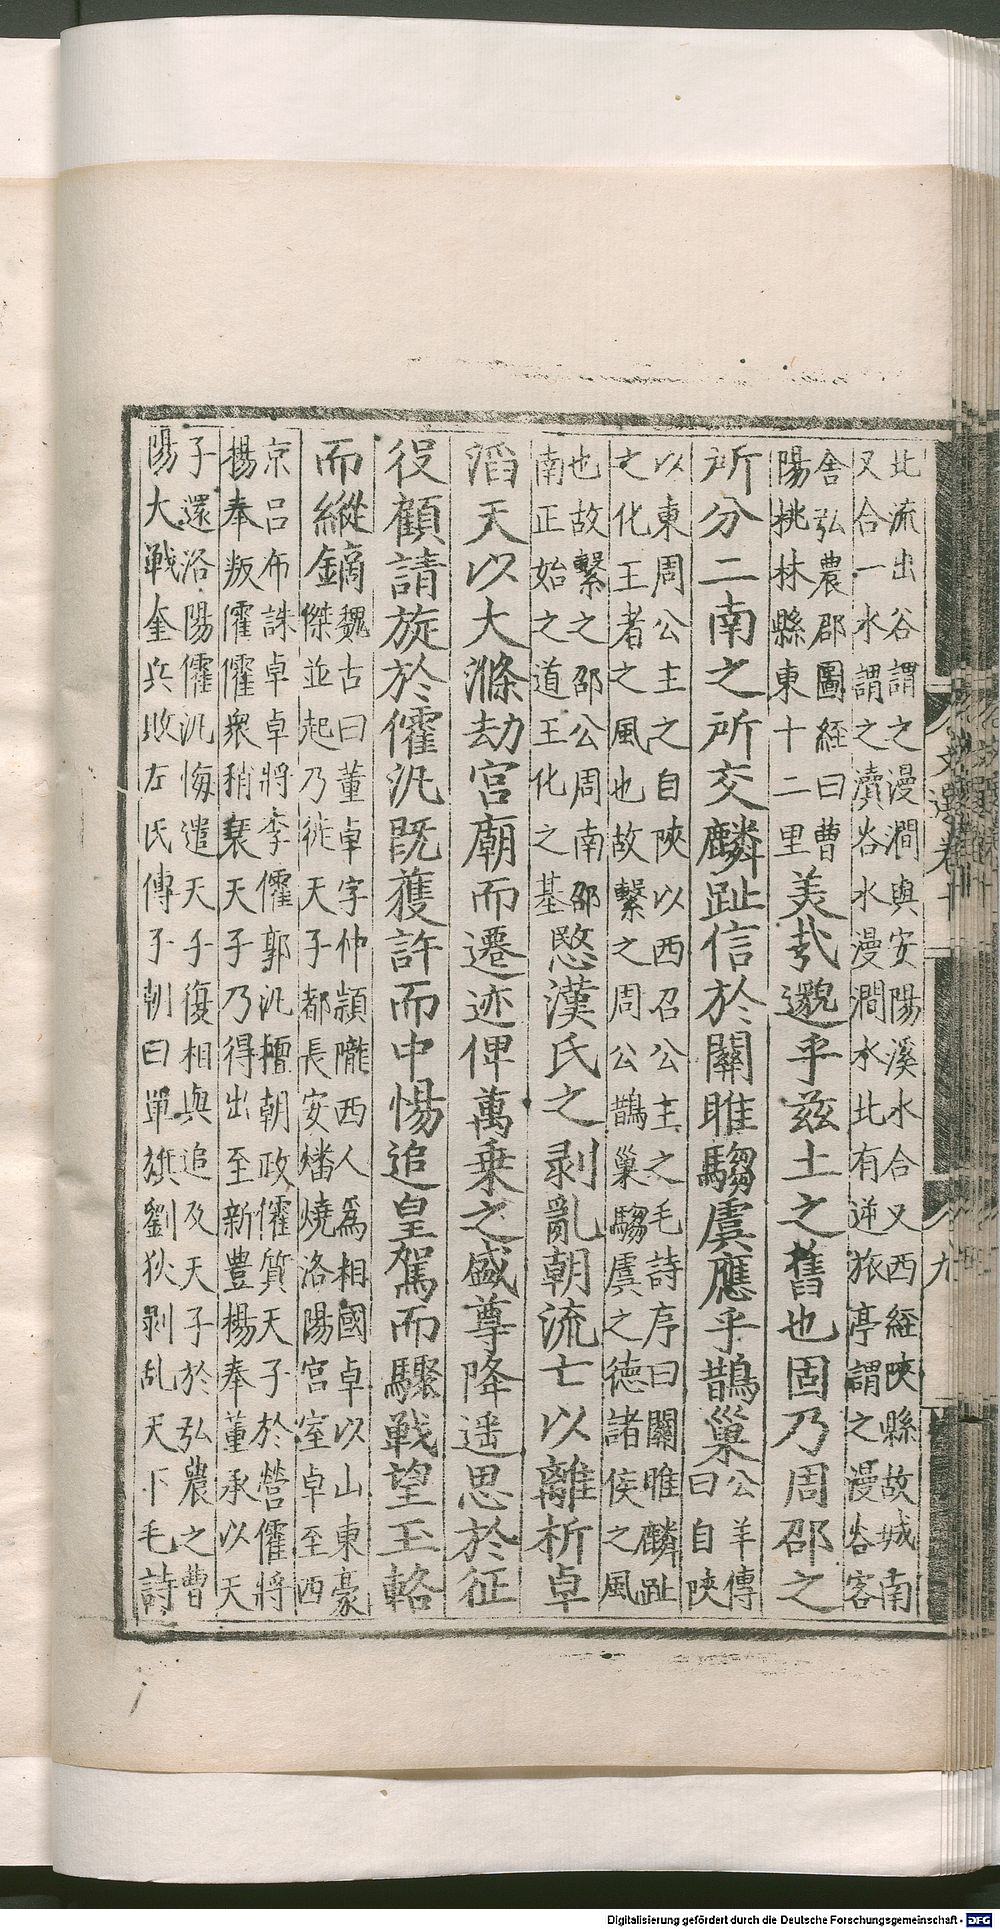 文選卷十
九
北流出谷謂之漫澗與安陽溪水合又西經陜縣故城南
又合一水謂之瀆谷水漫澗水北有逆旅亭謂之漫谷客
舍弘農郡圖經曰曹
陽桃林縣東十二里
美㢤邈乎兹土之舊也固乃周邵之
所分二南之所交麟趾信於關雎騶虞應乎鵲巢
公羊傳
曰自陜
以東周公主之自陜以西召公主之毛詩序曰關雎麟趾
之化王者之風也故繫之周公鵲巢騶虞之德諸侯之風
也故繫之邵公周南邵
南正始之道王化之基
愍漢氏之剥亂朝流亡以離析卓
滔天以大滌劫宮廟而遷迹俾萬乗之盛尊降遥思於征
役顧請旋於傕汜既獲許而中惕追皇駕而驟戰望玉輅
而縱鏑
魏古曰董卓字仲頴隴西人為相國卓以山東豪
傑並起乃徙天子都長安燔燒洛陽宮室卓至西
京呂布誅卓卓將李傕郭汜擅朝政傕質天子於營傕將
楊奉叛傕傕衆稍衰天子乃得出至新豐楊奉董承以天
子還洛陽傕汜悔遣天子復相與追及天子於弘農之曹
陽大戰奉兵敗左氏傳子朝曰單旗劉狄剥乱天下毛詩
Digitalisierung gefördert durch die Deutsche Forschungsgemeinschaft - DFG